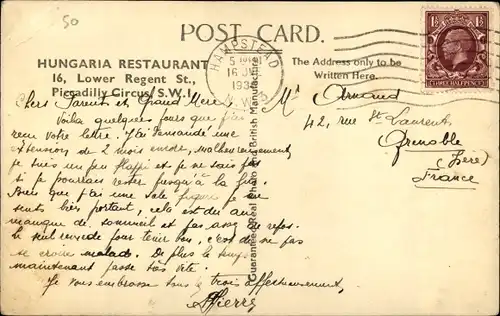 50
POST CARD.
HUNGARIA RESTAURANT
16, Lower Regent St.,
Piccadilly Circus, S.W.1.
The Address only to be
Written Here.
HAMPSTEAD
16
193
N.W.
1½ 1½
THREE HALFPENCE
Guaranteed Real Photo and British Manufacture
Chers Parents et Grand Mère,
Voila quelques jours que j'ai
reçu votre lettre. J'ai demandé une
extension de 2 mois encore, malheureusement,
je suis un peu et je ne sais pas
si je pourrai rester jusqu'à la fin.
Bien que j'ai une sale figure je me
sens bien portant, cela est du au
manque de sommeil et pas assez de repos.
le seul remède pour tenir bon, c'est de ne pas
se croire malade. De plus le temps
maintenant passe très vite.
Je vous embrasse tous le trois affectueusement,
Pierre
Mr Armand
42, rue St Laurent,
Grenoble
(Isère)
France